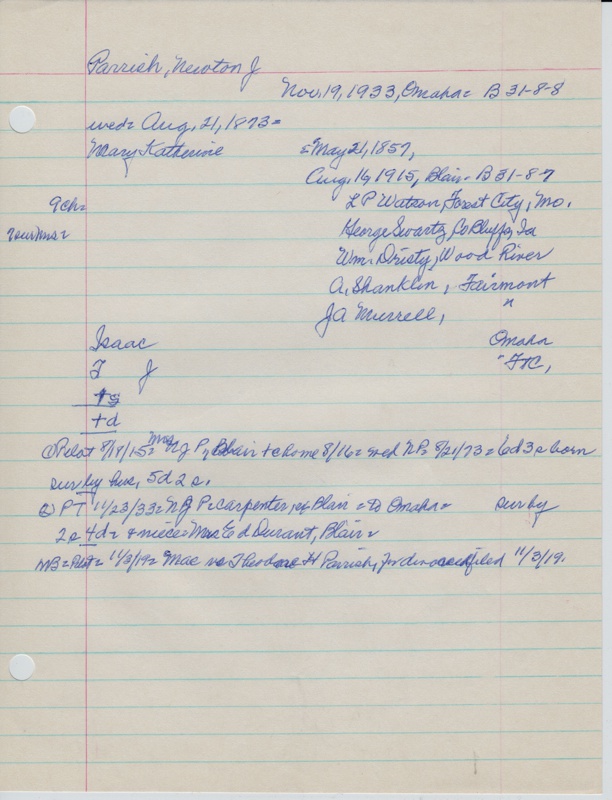 Parrish, Newton J
Nov. 19, 1933, Omaha= B 31-8-8
wed= Aug. 21, 1873=
Mary Katherine =May 21, 1857,
Aug. 16, 1915, Blair= B 31-8-7
9 ch= L P Watson, Forest City, Mo.
George Swartz, Co Bluffs, Ia
Wm. Dristy, Wood River
A. Shanklin, Fairmont
JA Murrell, "
Isaac Omaha
T J " FTC,
+s
+d
① Pilot 8/18/15= Mrs N J P, Blair + @ home 8/16= wed NP= 8/21/73= 6d 3s born
sur by hus, 5d 2s.
② PT 11/23/33= NJ P= carpenter, of Blair = to Omaha= sur by
2s 4d= + niece= Mrs Ed Durant, Blair=
NB= Pilot= 11/3/19= Mae vs Theodore H Parrish, for divorce filed 11/3/19.